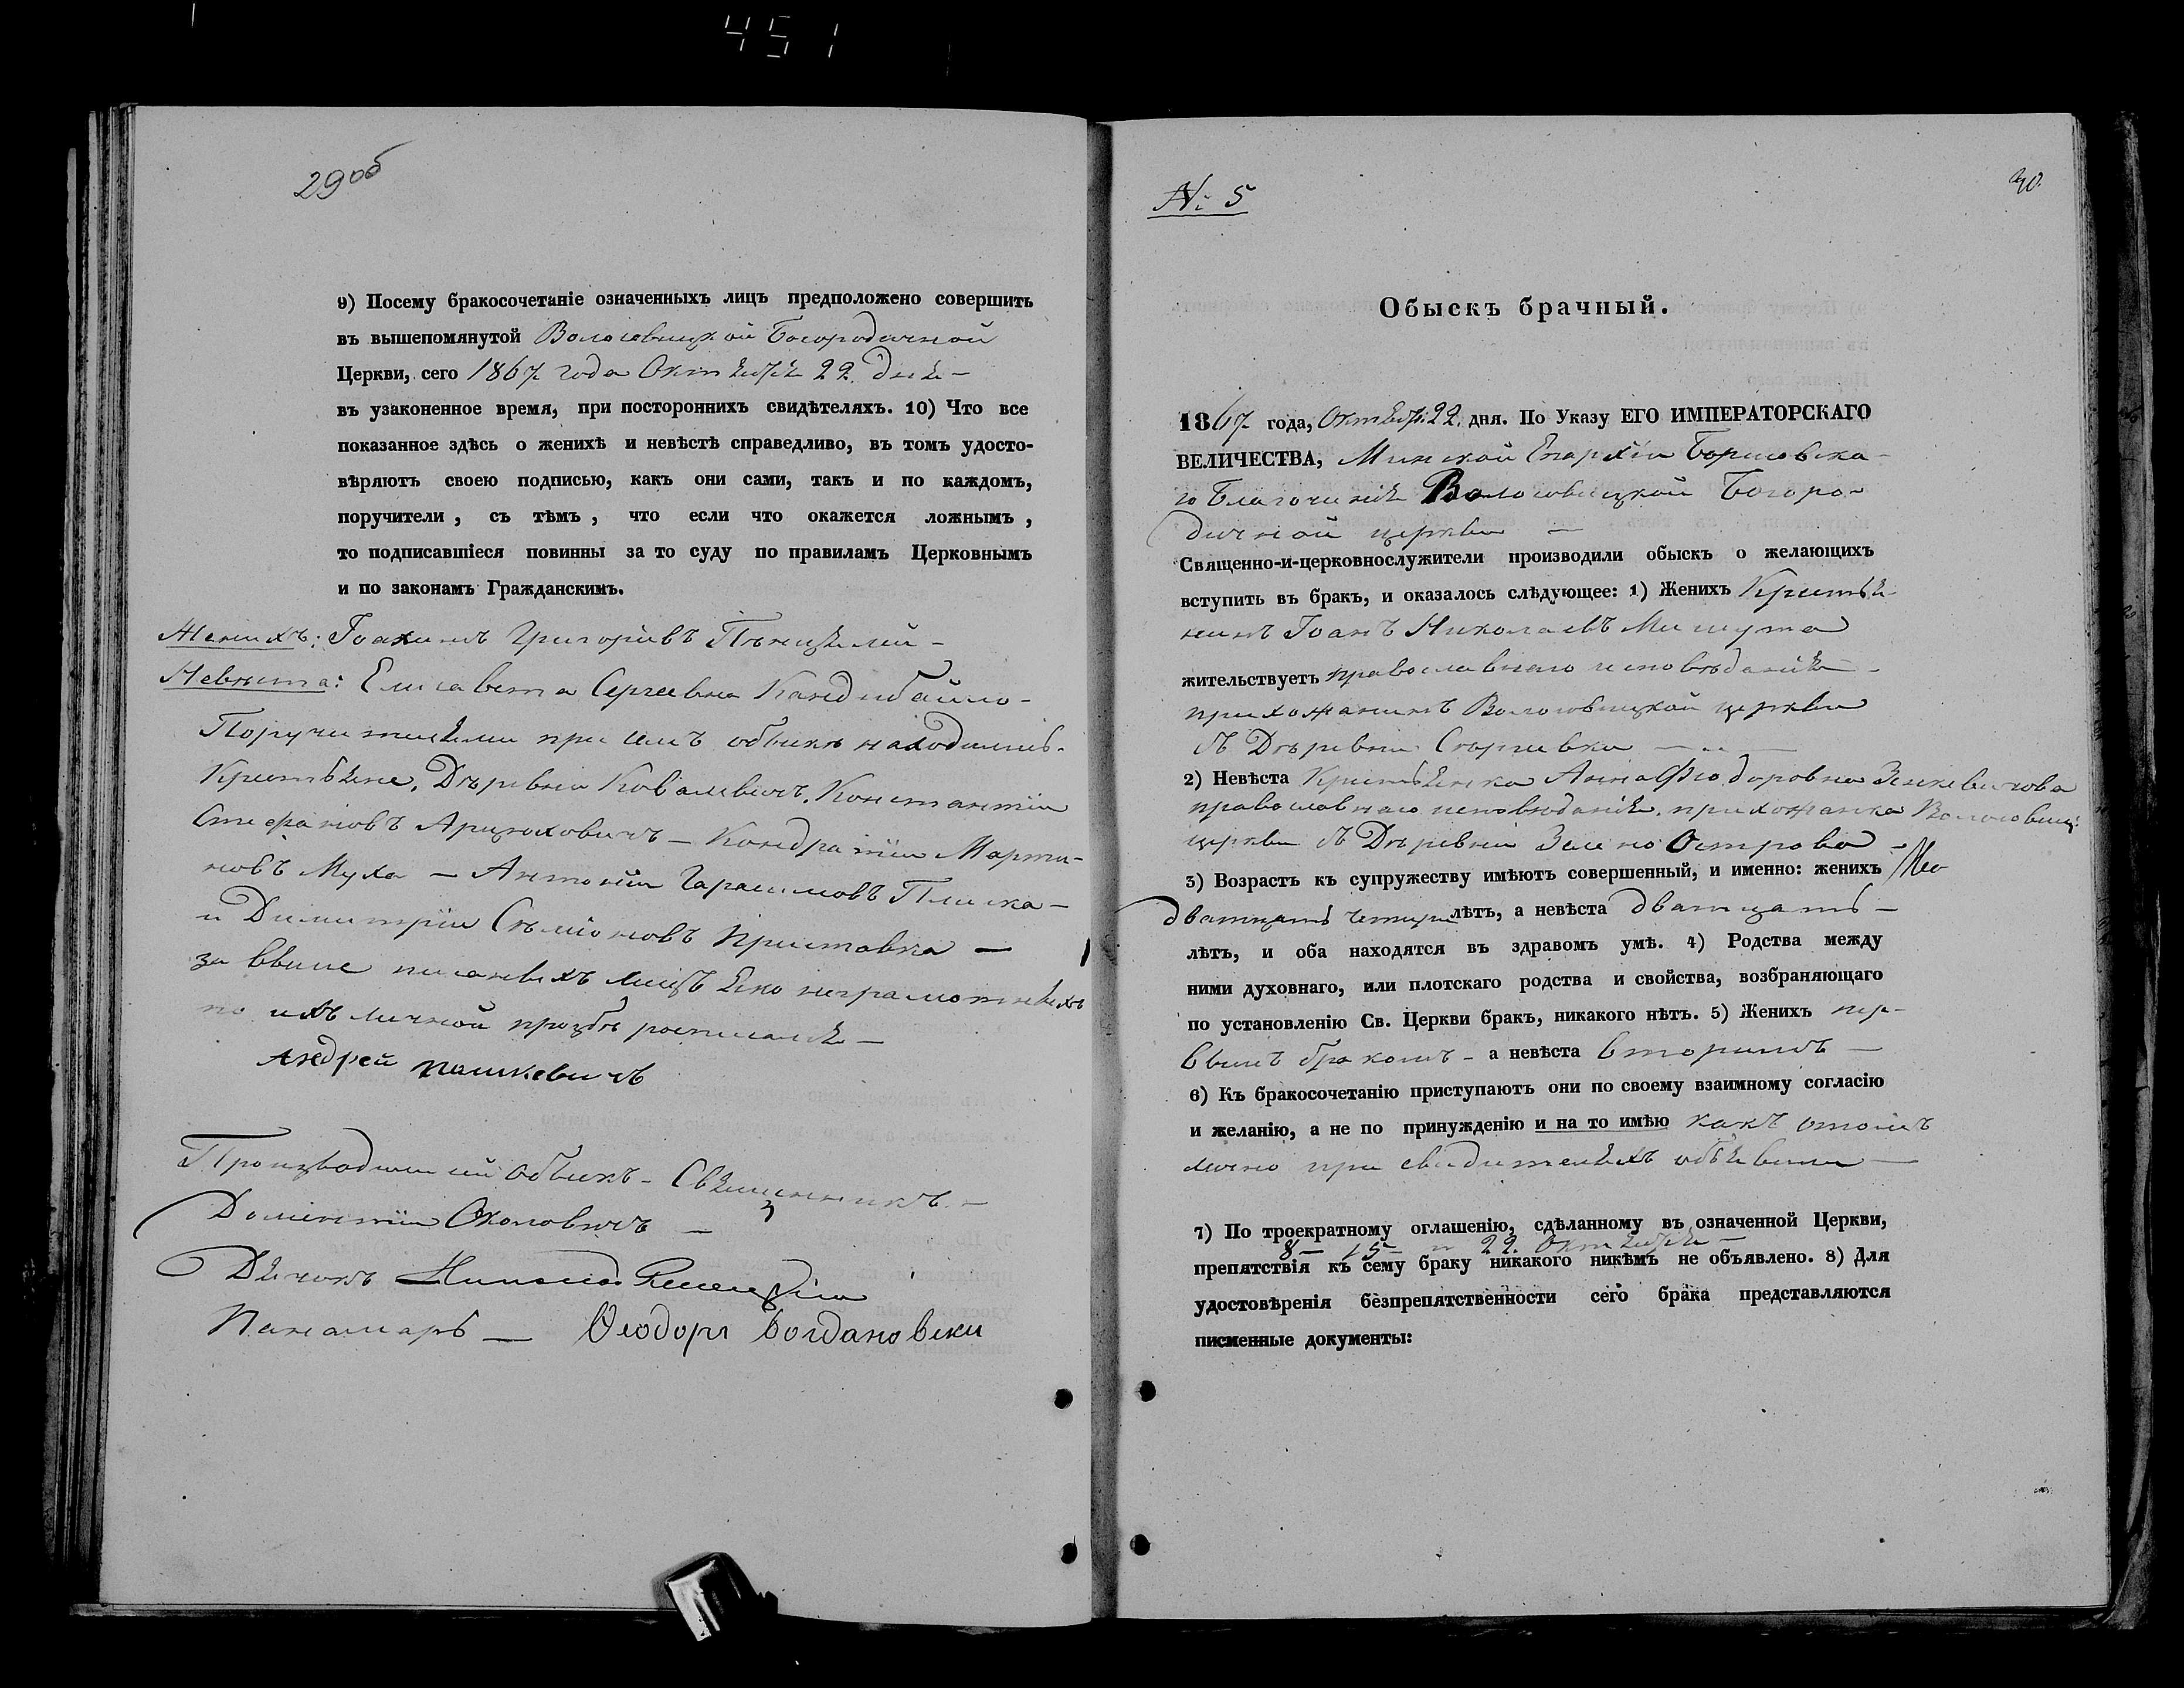 451
29об
9) Посему бракосочетаніе означенныхъ лицъ предположено совершить
въ вышепомянутой Волосовицкой Богородичной
Церкви, сего 1867 года Октября 22. дня —
въ узаконенное время, при постороннихъ свидѣтеляхъ. 10) Что все
показанное здѣсь о женихѣ и невѣстѣ справедливо, въ томъ удосто-
вѣряютъ своею подписью, какъ они сами, такъ и по каждомъ,
поручители, съ тѣмъ, что если что окажется ложнымъ,
то подписавшіеся повинны за то суду по правиламъ Церковнымъ
и по законамъ Гражданскимъ.
Женихъ: Іоакимъ Григоріевъ
Невѣста: Елисавета Сергеевна Кандыбайло —
Поручителями при семъ обыскѣ находились.
Крестьяне, Дѣревни Ковалевичъ, Константій
Стефановъ Арцюховичъ — Кондратій Марти-
новъ Муха — Антоній Гарасимовъ Плиска —
и Димитрій Сѣміоновъ Приставка —
за ввыше писанныхъ лицъ яко неграмотныхъ
по ихъ личной прозбѣ росписался —
Андрей Пашкевичъ
Производившій обыскъ — Священникъ. —
Доментій Околовичъ —
Дячокъ
Панамарь — Ѳеодоръ Богдановски
№ 5
30.
Обыскъ брачный.
1867 года, Октября 22. дня. По Указу ЕГО ИМПЕРАТОРСКАГО
ВЕЛИЧЕСТВА, Минской Епархіи Борисовска-
го Благочинія Волосовицкой Богоро-
дичной церкви —
Священно-и-церковнослужители производили обыскъ о желающихъ
вступить въ бракъ, и оказалось слѣдующее: 1) Женихъ Крестья-
нинъ Іоанъ Николаевъ Мисута
жительствуетъ православнаго исповѣданія —
прихожанинъ Волосовицкой церкви
съ Дѣревни
2) Невѣста Крестьянка Анна Фіодоровна Зенкевичова
православнаго исповѣданія. прихожанка Волосовиц:
церкви съ Дѣревни Зелено Острова —
3) Возрастъ къ супружеству имѣютъ совершенный, и именно: женихъ
дватцать четыри лѣтъ, а невѣста дватцать —
лѣтъ, и оба находятся въ здравомъ умѣ. 4) Родства между
ними духовнаго, или плотскаго родства и свойства, возбраняющаго
по установленію Св. Церкви бракъ, никакого нѣтъ. 5) Женихъ пер-
вымъ бракомъ — а невѣста вторимъ —
6) Къ бракосочетанію приступаютъ они по своему взаимному согласію
и желанію, а не по принужденію и на то имѣю какъ отомъ
лично при свидителяхъ объявили —
7) По троекратному оглашенію, сдѣланному въ означенной Церкви,
8 — 15 — и 22. Октября —
препятствія къ сему браку никакого никѣмъ не объявлено. 8) Для
удостовѣренія безпрепятственности сего брака представляются
писменные документы: